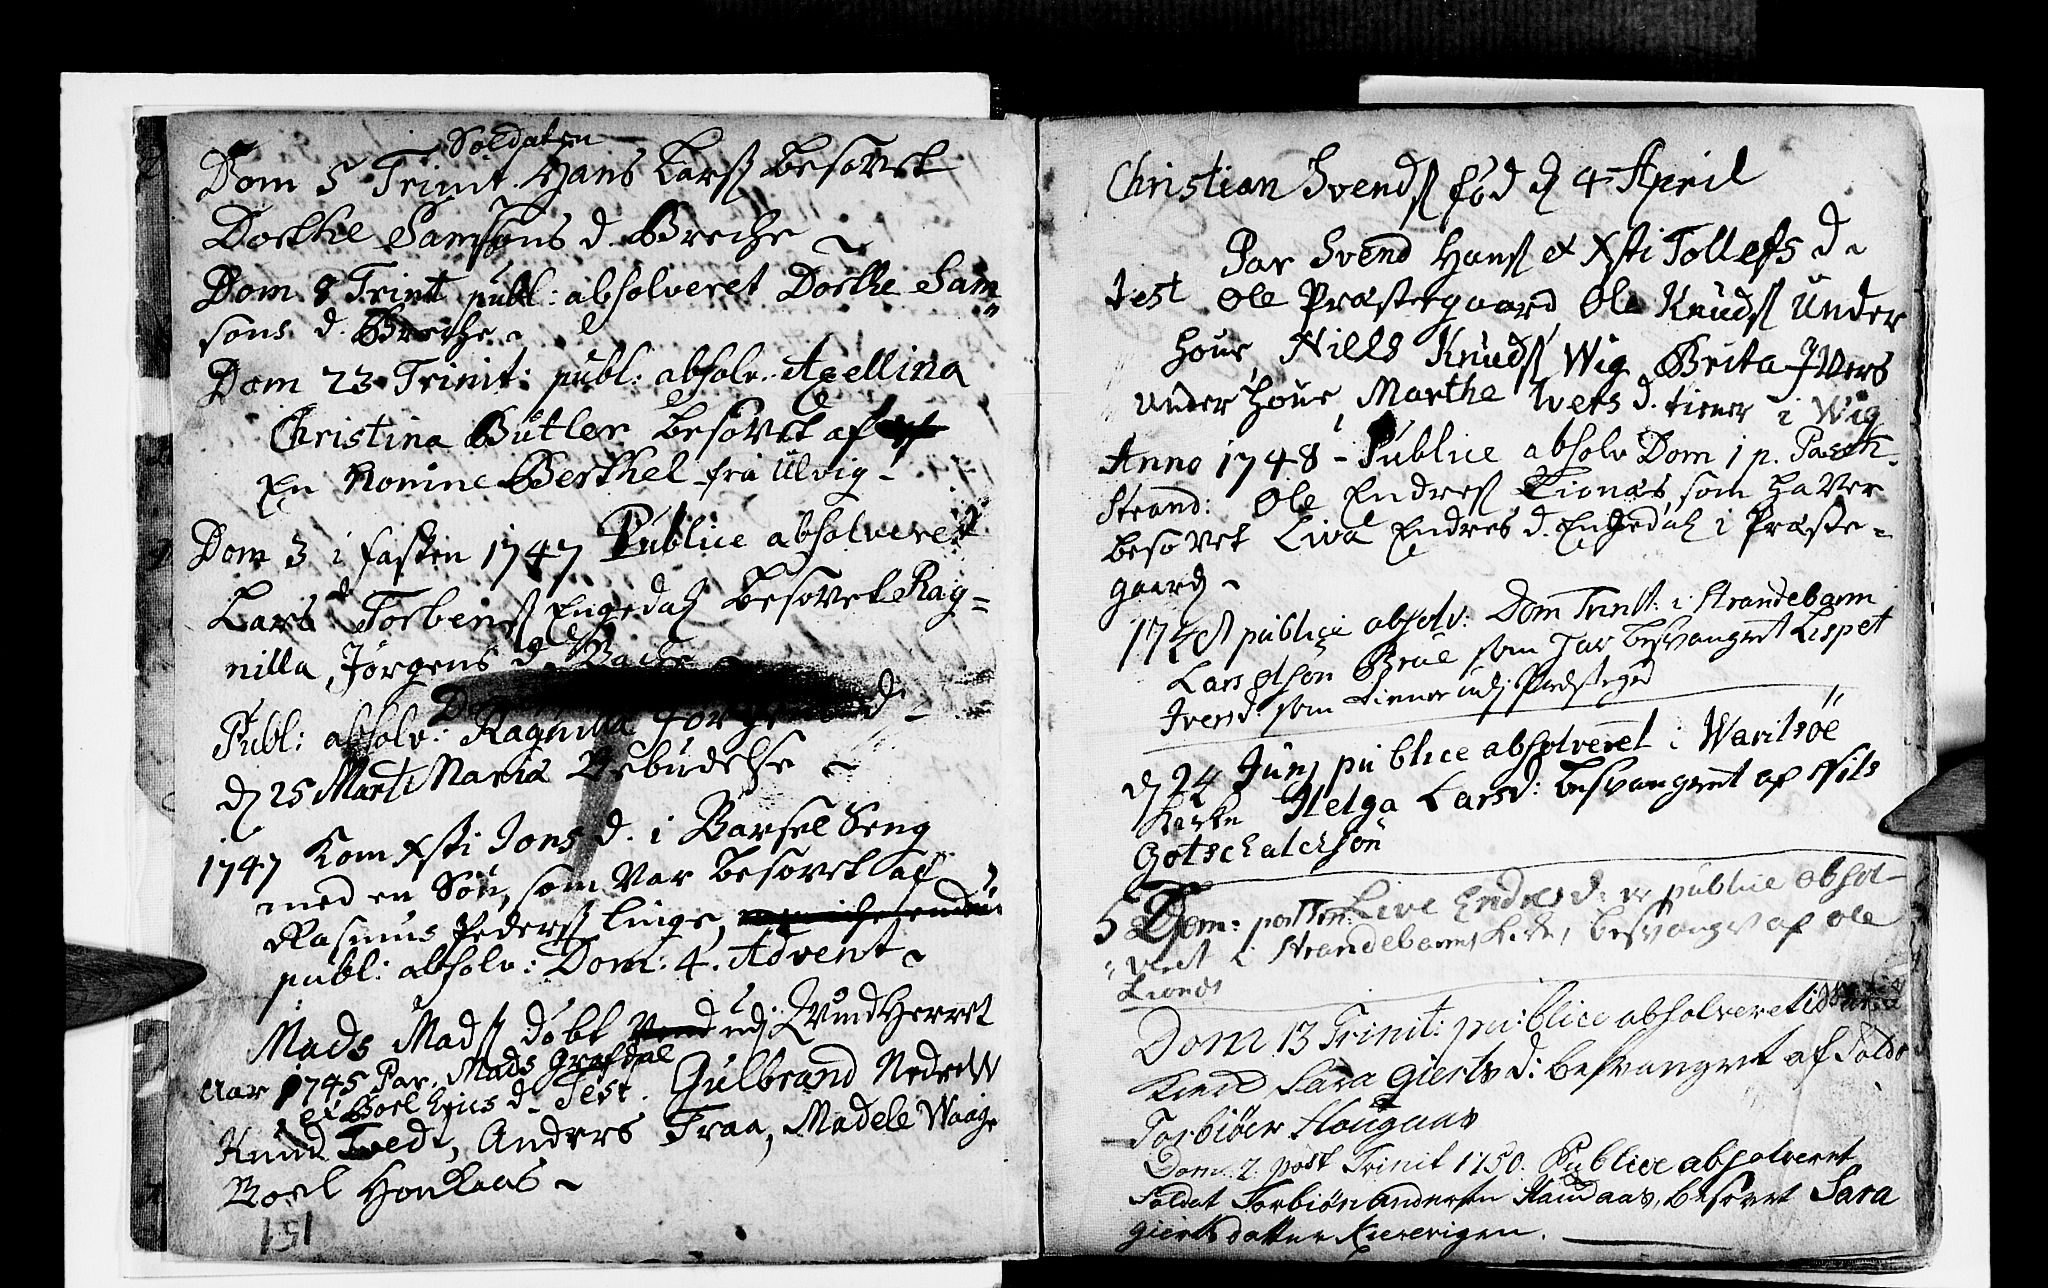 Soldaten
Dom 5 Trinit. Hans Larsß besovet
Dorthe Samsons d. Breche
Dom 8 Trinit publ: absolveret Dorthe Sam
sons d. Breche
Dom 23 Trinit: publ: absolv. Axellina
Christina Bütler besovet af
En Nomine Berthel fra Ulvig
Dom 3 i fasten 1747 Publice absolveret
Lars Torbensß Engedal besovet Rag=
nilla, Jørgens d.
Publ: absolv: Ragnilla Jørgens d
d 25 Marti Mariæ Bebudelse
1747 Kom Xsti Jons d. i Barsel Seng
med en Søn, som var besovet af
Rasmus Pedersß Linge,
publ: absolv: Dom: 4. Advent
Mads Madsß døbt udj Qvindherret
Aar 1745 Par. Mads Grafdal
et Boel d. Test. Gulbrand Nedre
Knud Tvedt, Anders Traa, Madele Waage
Boel Honkaas
151
Christian Svendsß fød d 4 April
Par Svend Hansß et Xsti Tollefs d
Test Ole Præstegaard Ole Knudsß Under
houe, Nills Knudsß Wig Brita Ivers
Underhoue, Marthe Wets d. tiener i Wig
Anno 1748 - Publice absolv Dom 1 p. Pasch.
Strand: Ole Endresß Lionæs, som haver
besovet Liva Endres d. Engedal i Præste=
gaard
1748 publice absolv: Dom Trinit: i Strandebarm
Lars Olsøn Brue som har besvangret Lispet
Ivers d: som tiener udj Præsteged
d 24 Junj publice absolveret i Waritsöe
Kirke Helga Lars d: besvangret af Nils
Gotschalchsøn
5 Dom: post Trin: Live Endres d: publice absol-
veret i Strandebarms Kirke, besvangr af Ole
Lionæs
Dom 13 Trinit: publice absolveret
Sara Gierts d: besvangret af Sold
Torbiöer Haugaas
Dom. 2. post Trinit 1750. Publice absolveret
Soldat Torbiön Andersen Haugaas, besovet Sara
Giertsdatter